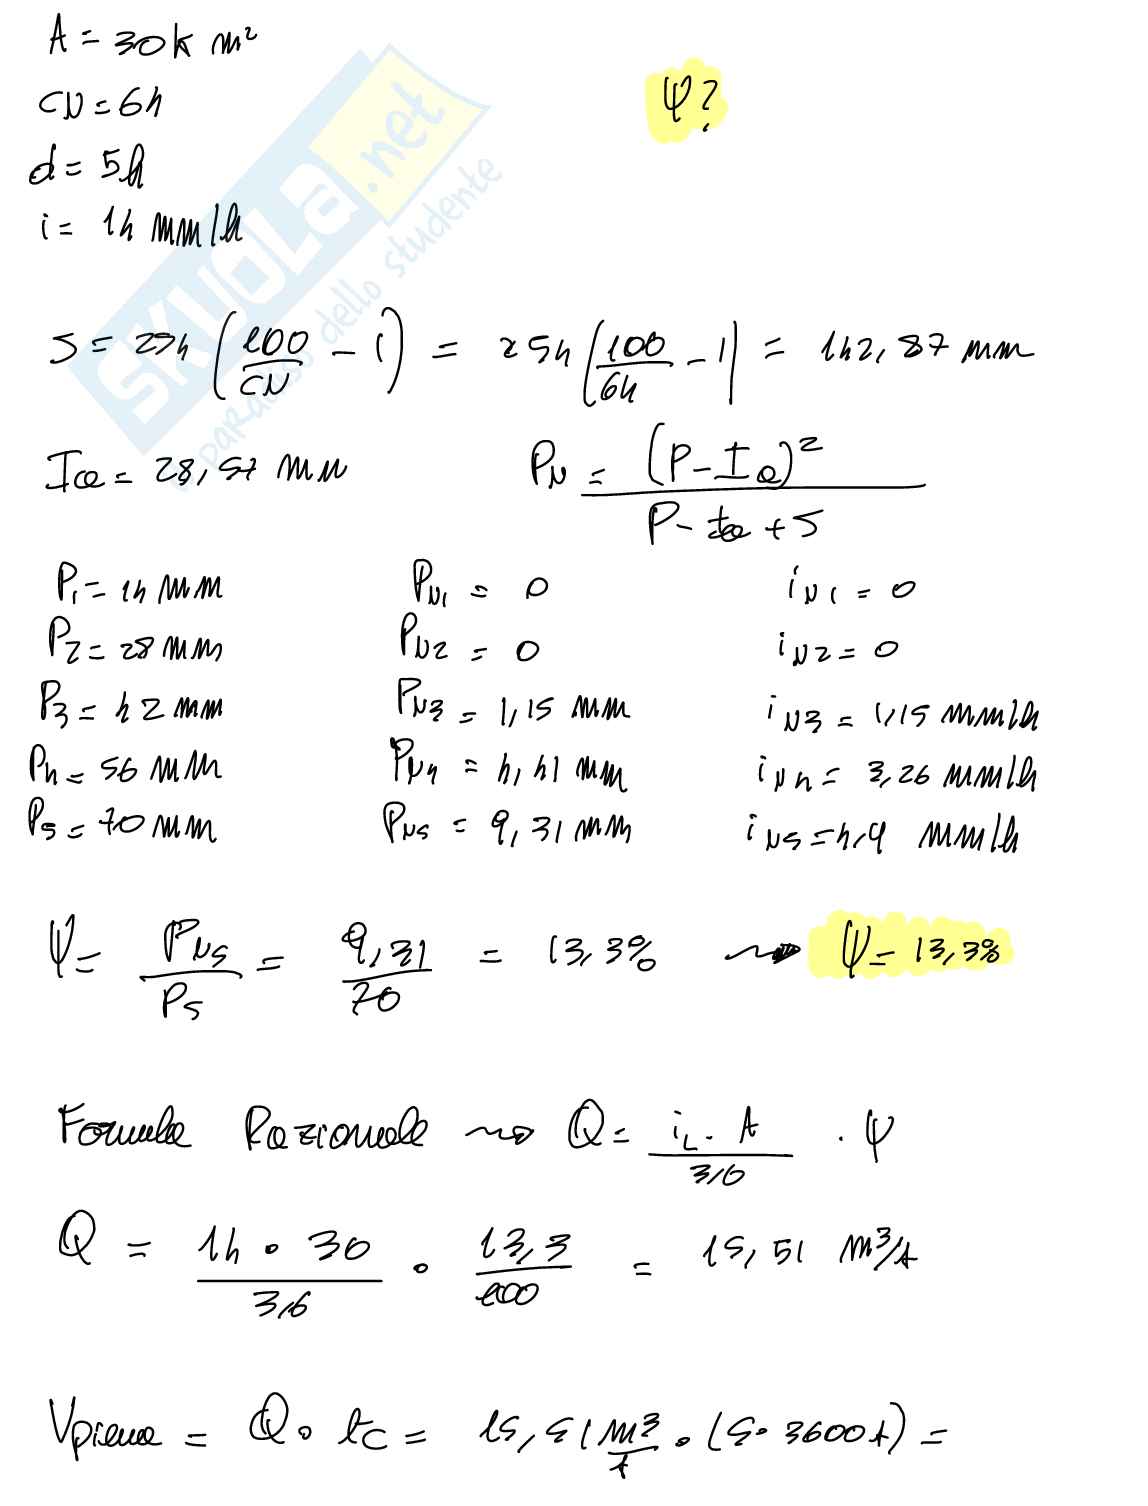 A = 30 km²
ψ?
CN = 64
d = 5h
i = 14 mm/h
SKUOLA.net
paradiso dello studente
S = 254 (100/CN - 1) = 254 (100/64 - 1) = 142,87 mm
Ia = 28,57 mm    PN = (P - Ia)² / P - Ia + S
P1 = 14 mm    PN1 = 0    iN1 = 0
P2 = 28 mm    PN2 = 0    iN2 = 0
P3 = 42 mm    PN3 = 1,15 mm    iN3 = 1,15 mm/h
P4 = 56 mm    PN4 = 4,41 mm    iN4 = 3,26 mm/h
P5 = 70 mm    PN5 = 9,31 mm    iN5 = 4,9 mm/h
ψ = PN5/P5 = 9,31/70 = 13,3% → ψ = 13,3%
Formula Razionale → Q = iL · A / 3,6 · ψ
Q = 14 · 30 / 3,6 · 13,3/100 = 15,51 m³/s
Vpiena = Q · tc = 15,51 m³/s · (5 · 3600 s) =